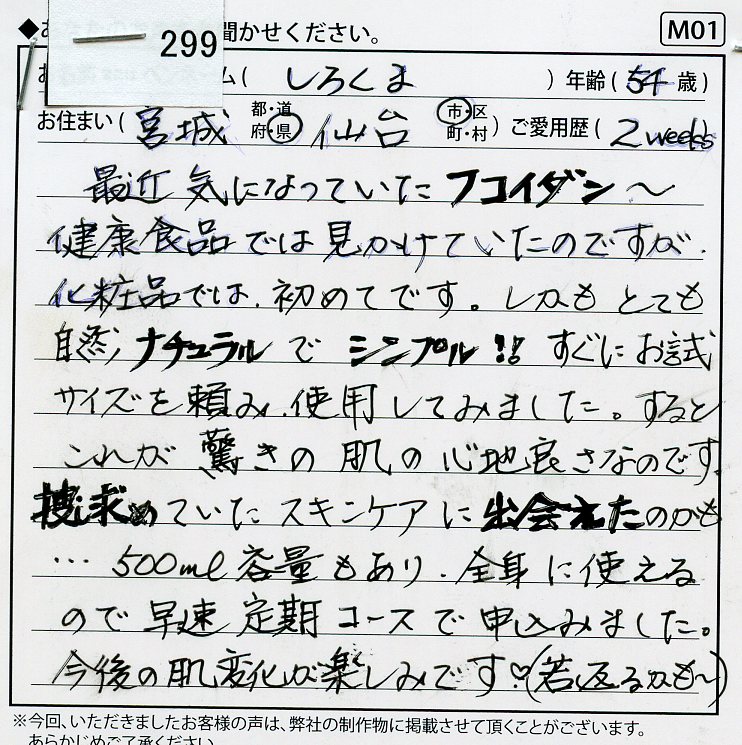 ◆あ 聞かせください。 M01
299
お ム( しろくま ) 年齢( 54 歳)
お住まい( 宮城 都・道府・県 仙台 市・区町・村) ご愛用歴( 2 weeks
最近 気になっていた フコイダン〜
健康食品では見かけていたのですが、
化粧品では、初めてです。しかも とても
自然、ナチュラルで シンプル!! すぐにお試
サイズを頼み、使用してみました。すると
これが 驚きの 肌の心地良さなのです。
捜求めていた スキンケアに 出会えたのかも
… 500ml 容量もあり、全身に使える
ので早速 定期コースで 申込みました。
今後の肌変化が楽しみです♡(若返るかも〜)
※今回、いただきましたお客様の声は、弊社の制作物に掲載させて頂くことがございます。
あらかじめご了承ください。